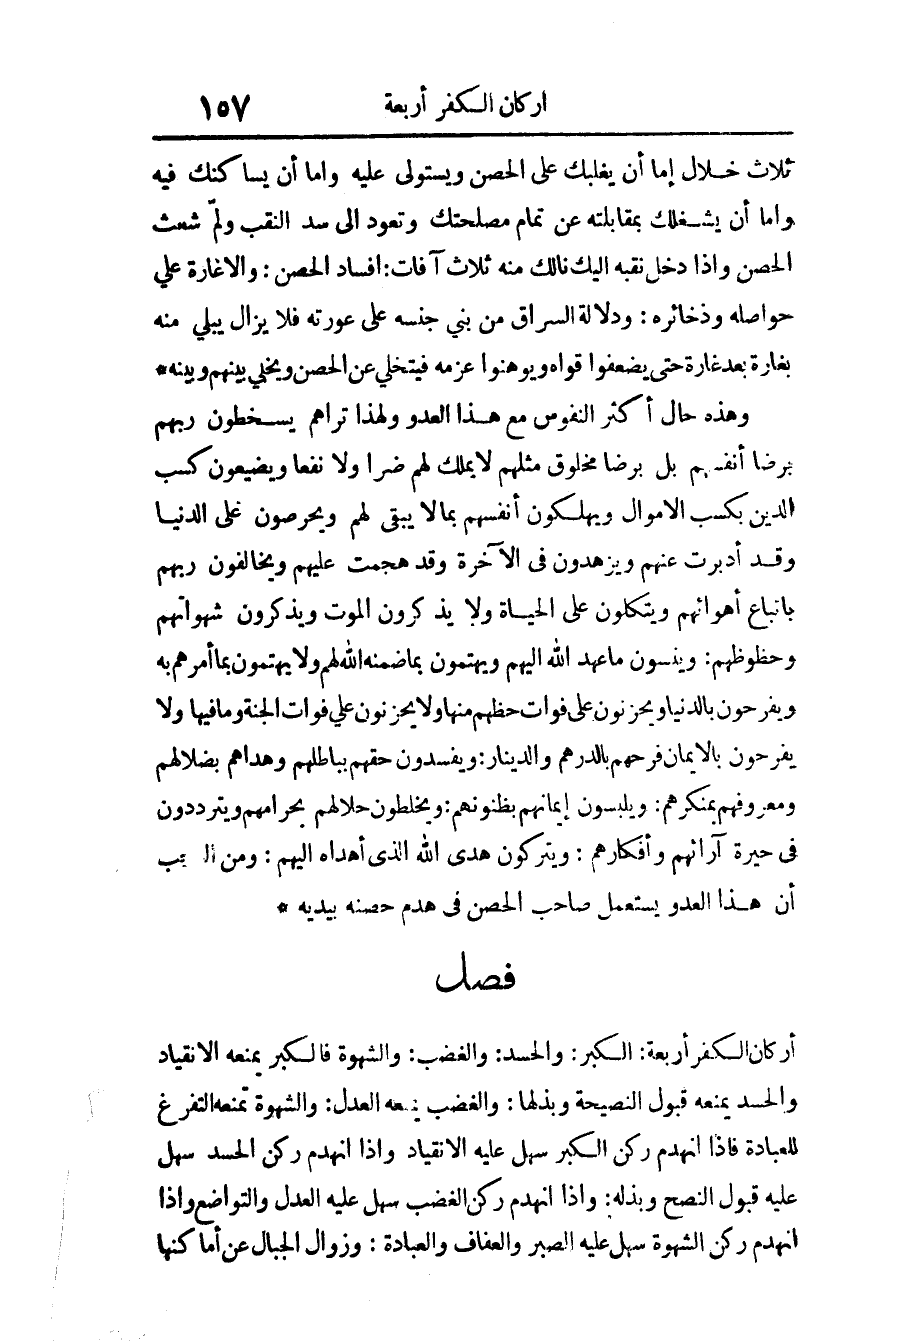 اركان الكفر أربعة ١٥٧
ثلاث خلال إما أن يغلبك على الحصن ويستولى عليه واما أن يساكنك فيه
واما أن يشغلك بمقابلته عن تمام مصلحتك وتعود الى سد النقب ولمّ شعث
الحصن واذا دخل نقبه اليك نالك منه ثلاث آفات: افساد الحصن: والاغارة علي
حواصله وذخائره: ودلالة السراق من بني جنسه على عورته فلا يزال يبلي منه
بغارة بعد غارة حتى يضعفوا قواه ويوهنوا عزمه فيتخلي عن الحصن ويخلي بينهم وبينه *
وهذه حال أكثر النفوس مع هذا العدو ولهذا تراهم يسخطون ربهم
برضا أنفسهم بل برضا مخلوق مثلهم لا يملك لهم ضرا ولا نفعا ويضيعون كسب
الدين بكسب الاموال ويهلكون أنفسهم بمالا يبقى لهم ويحرصون على الدنيا
وقد أدبرت عنهم ويزهدون فى الآخرة وقد هجمت عليهم ويخالفون ربهم
باتباع أهوائهم ويتكلون على الحياة ولا يذكرون الموت ويذكرون شهواتهم
وحظوظهم: وينسون ماعهد الله اليهم ويهتمون بماضمنه الله لهم ولا يهتمون بما أمرهم به
ويفرحون بالدنيا ويحزنون على فوات حظهم منها ولا يحزنون علي فوات الجنة وما فيها ولا
يفرحون بالايمان فرحهم بالدرهم والدينار: ويفسدون حقهم بباطلهم وهداهم بضلالهم
ومعروفهم بمنكرهم: ويلبسون إيمانهم بظنونهم: ويخلطون حلالهم بحرامهم ويترددون
فى حيرة آرائهم وأفكارهم: ويتركون هدى الله الذى أهداه اليهم: ومن
أن هذا العدو يستعمل صاحب الحصن فى هدم حصنه بيديه *
فصل
أركان الكفر أربعة: الكبر: والحسد: والغضب: والشهوة فالكبر يمنعه الانقياد
والحسد يمنعه قبول النصيحة وبذلها: والغضب يمنعه العدل: والشهوة تمنعه التفرغ
للعبادة فاذا انهدم ركن الكبر سهل عليه الانقياد واذا انهدم ركن الحسد سهل
عليه قبول النصح وبذله: واذا انهدم ركن الغضب سهل عليه العدل والتواضع واذا
انهدم ركن الشهوة سهل عليه الصبر والعفاف والعبادة: وزوال الجبال عن أماكنها